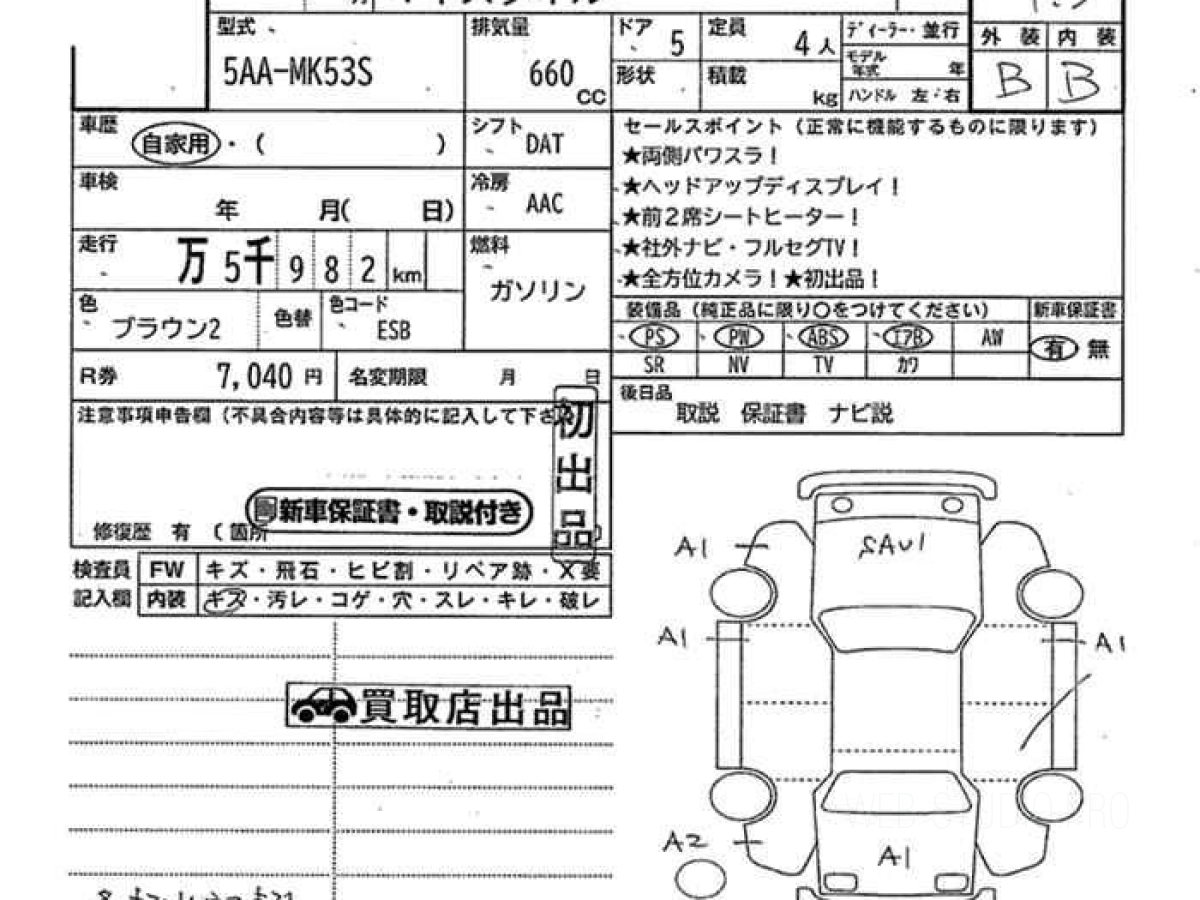 型式
5AA-MK53S
排気量
660
CC
ドア
5
定員
4人
形状
積載
kg
ディーラー・並行
モデル
年式
年
ハンドル 左・右
外装
内装
B
B
車歴
自家用・( )
シフト
DAT
車検
年 月( 日)
冷房
AAC
走行
万 5千 9 8 2 km
燃料
ガソリン
色
ブラウン2
色替
色コード
ESB
R券
7,040 円
名変期限
月 日
セールスポイント（正常に機能するものに限ります）
★両側パワスラ！
★ヘッドアップディスプレイ！
★前2席シートヒーター！
★社外ナビ・フルセグTV！
★全方位カメラ！★初出品！
装備品（純正品に限り○をつけてください）
新車保証書
PS PW ABS エアB AW
SR NV TV カワ
有 無
後日品
取説 保証書 ナビ説
注意事項申告欄（不具合内容等は具体的に記入して下さ
初出品
新車保証書・取説付き
修復歴 有 （箇所
検査員
記入欄
FW
キズ・飛石・ヒビ割・リペア跡・X要
内装
キズ・汚レ・コゲ・穴・スレ・キレ・破レ
買取店出品
A1
SAU1
A1
A1
A2
A1